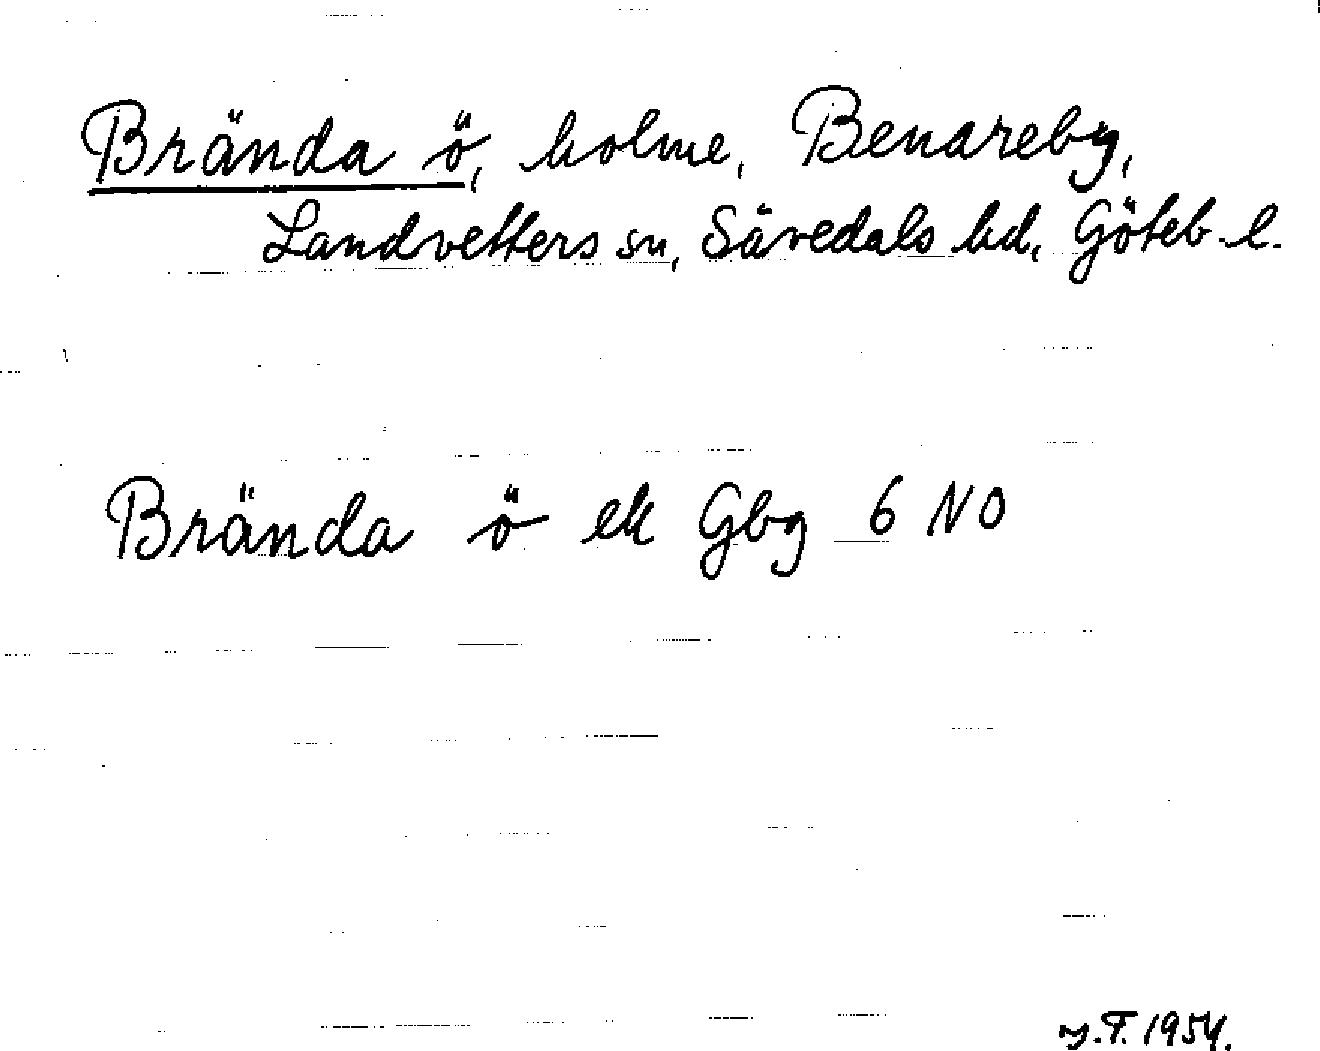 Brända ö, holme, Benareby,
Landvetters sn, Sävedals hd, Göteb. l.
Brända ö ek Gbg 6 NO
1954.